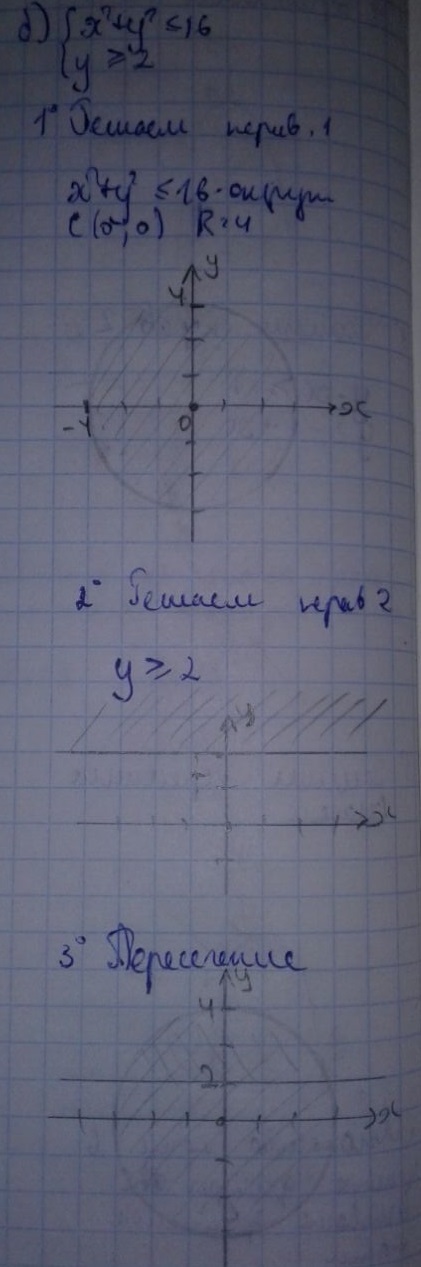 б) { x²+y² ≤ 16
y ≥ 2
1° Решаем нерав. 1
x²+y² ≤ 16 - окруж
C (0; 0) R = 4
y
4
-4 0 x
2° Решаем нерав 2
y ≥ 2
y
x
3° Пересечение
y
4
2
0 x